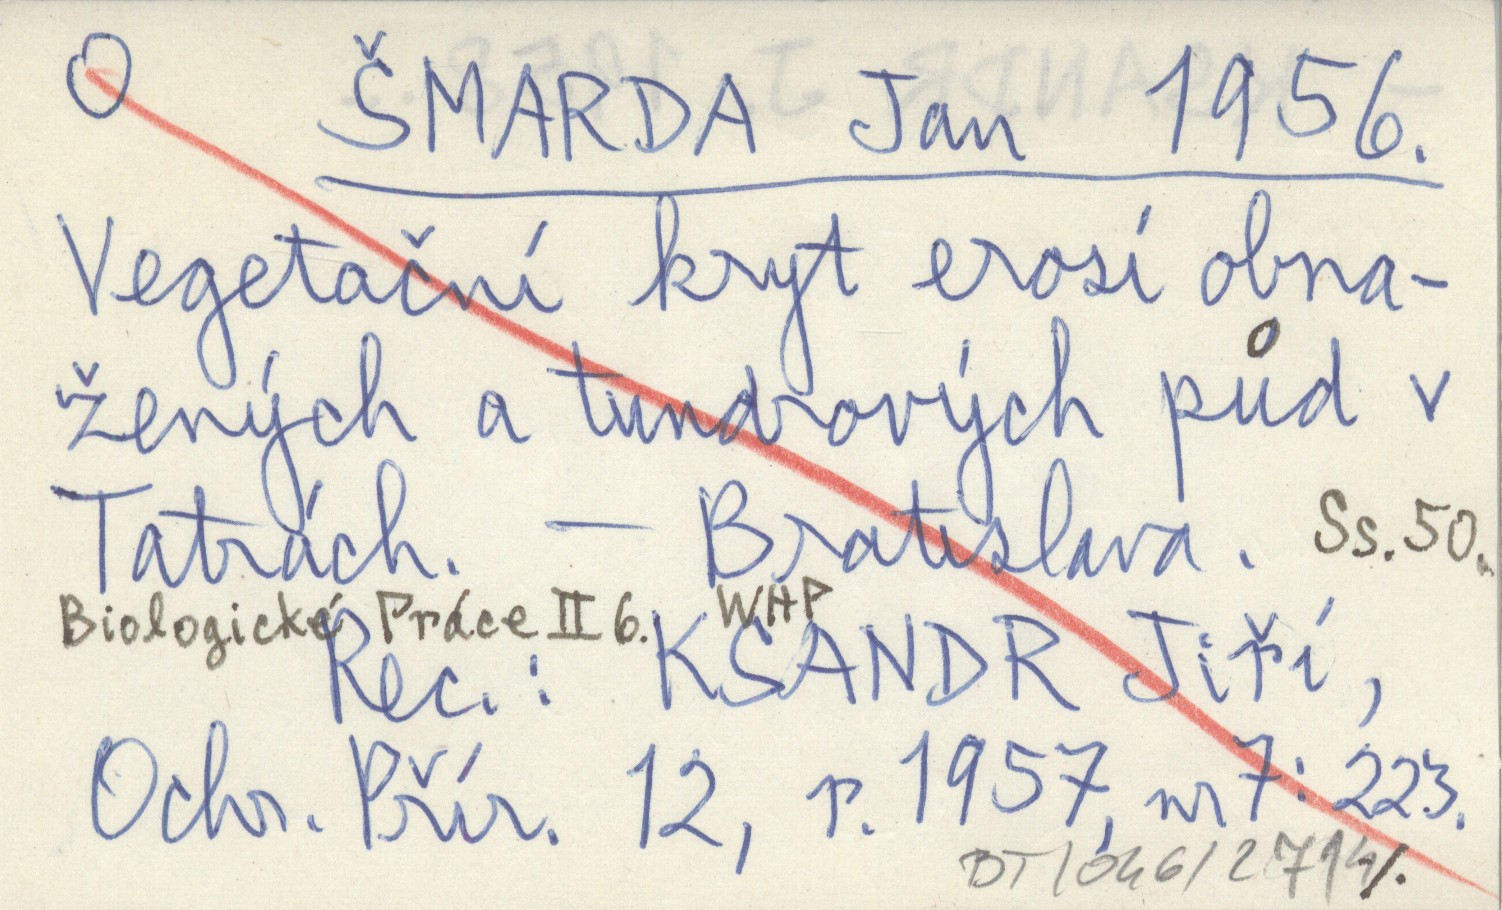 O ŠMARDA Jan 1956.
Vegetační kryt erosí obna-
žených a tundrových půd v
Tatrách. — Bratislava. Ss. 50.
Biologické Práce II 6. WHP
Rec.: KSANDR Jiří,
Ochr. Přír. 12, r. 1957, nr 7: 223.
BT/046/2714/.